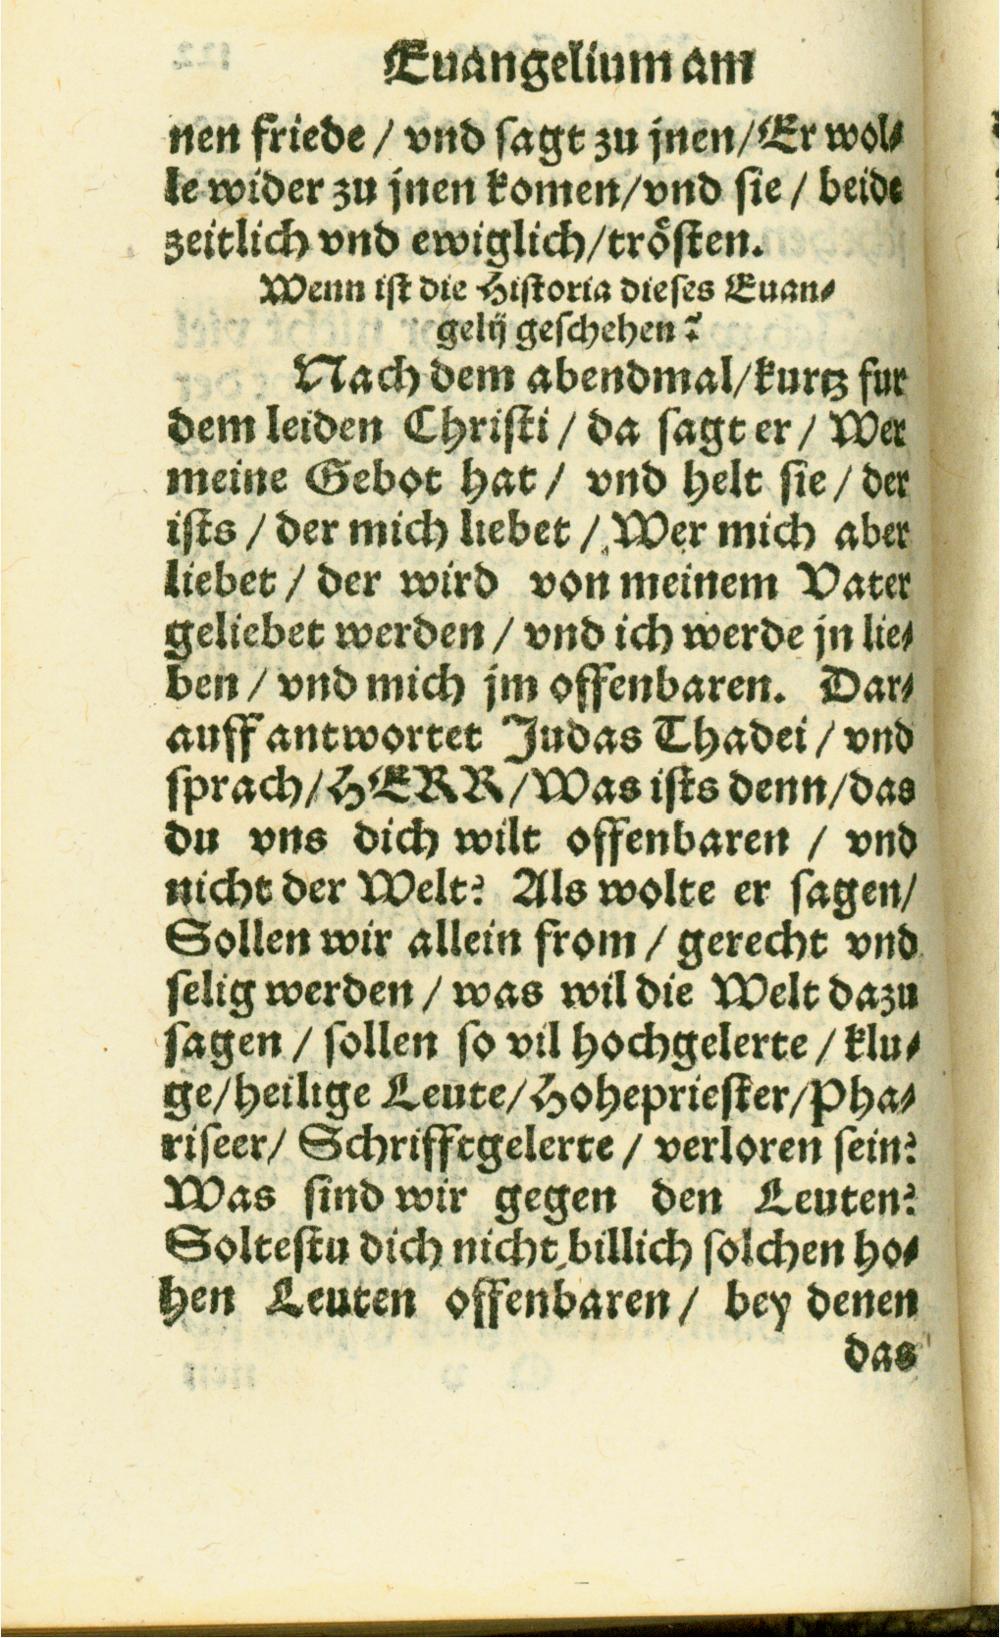 Euangelium am
nen friede / vnd sagt zu jnen / Er wol-
le wider zu jnen komen / vnd sie / beide
zeitlich vnd ewiglich / trösten.
Wenn ist die Historia dieses Euan-
gelij geschehen?
Nach dem abendmal / kurtz fur
dem leiden Christi / da sagt er / Wer
meine Gebot hat / vnd helt sie / der
ists / der mich liebet / Wer mich aber
liebet / der wird von meinem Vater
geliebet werden / vnd ich werde jn lie-
ben / vnd mich jm offenbaren. Dar-
auff antwortet Judas Thadei / vnd
sprach / HERR / Was ists denn / das
du vns dich wilt offenbaren / vnd
nicht der Welt? Als wolte er sagen /
Sollen wir allein from / gerecht vnd
selig werden / was wil die Welt dazu
sagen / sollen so vil hochgelerte / klu-
ge / heilige Leute / Hohepriester / Pha-
riseer / Schrifftgelerte / verloren sein?
Was sind wir gegen den Leuten?
Soltestu dich nicht billich solchen ho-
hen Leuten offenbaren / bey denen
das